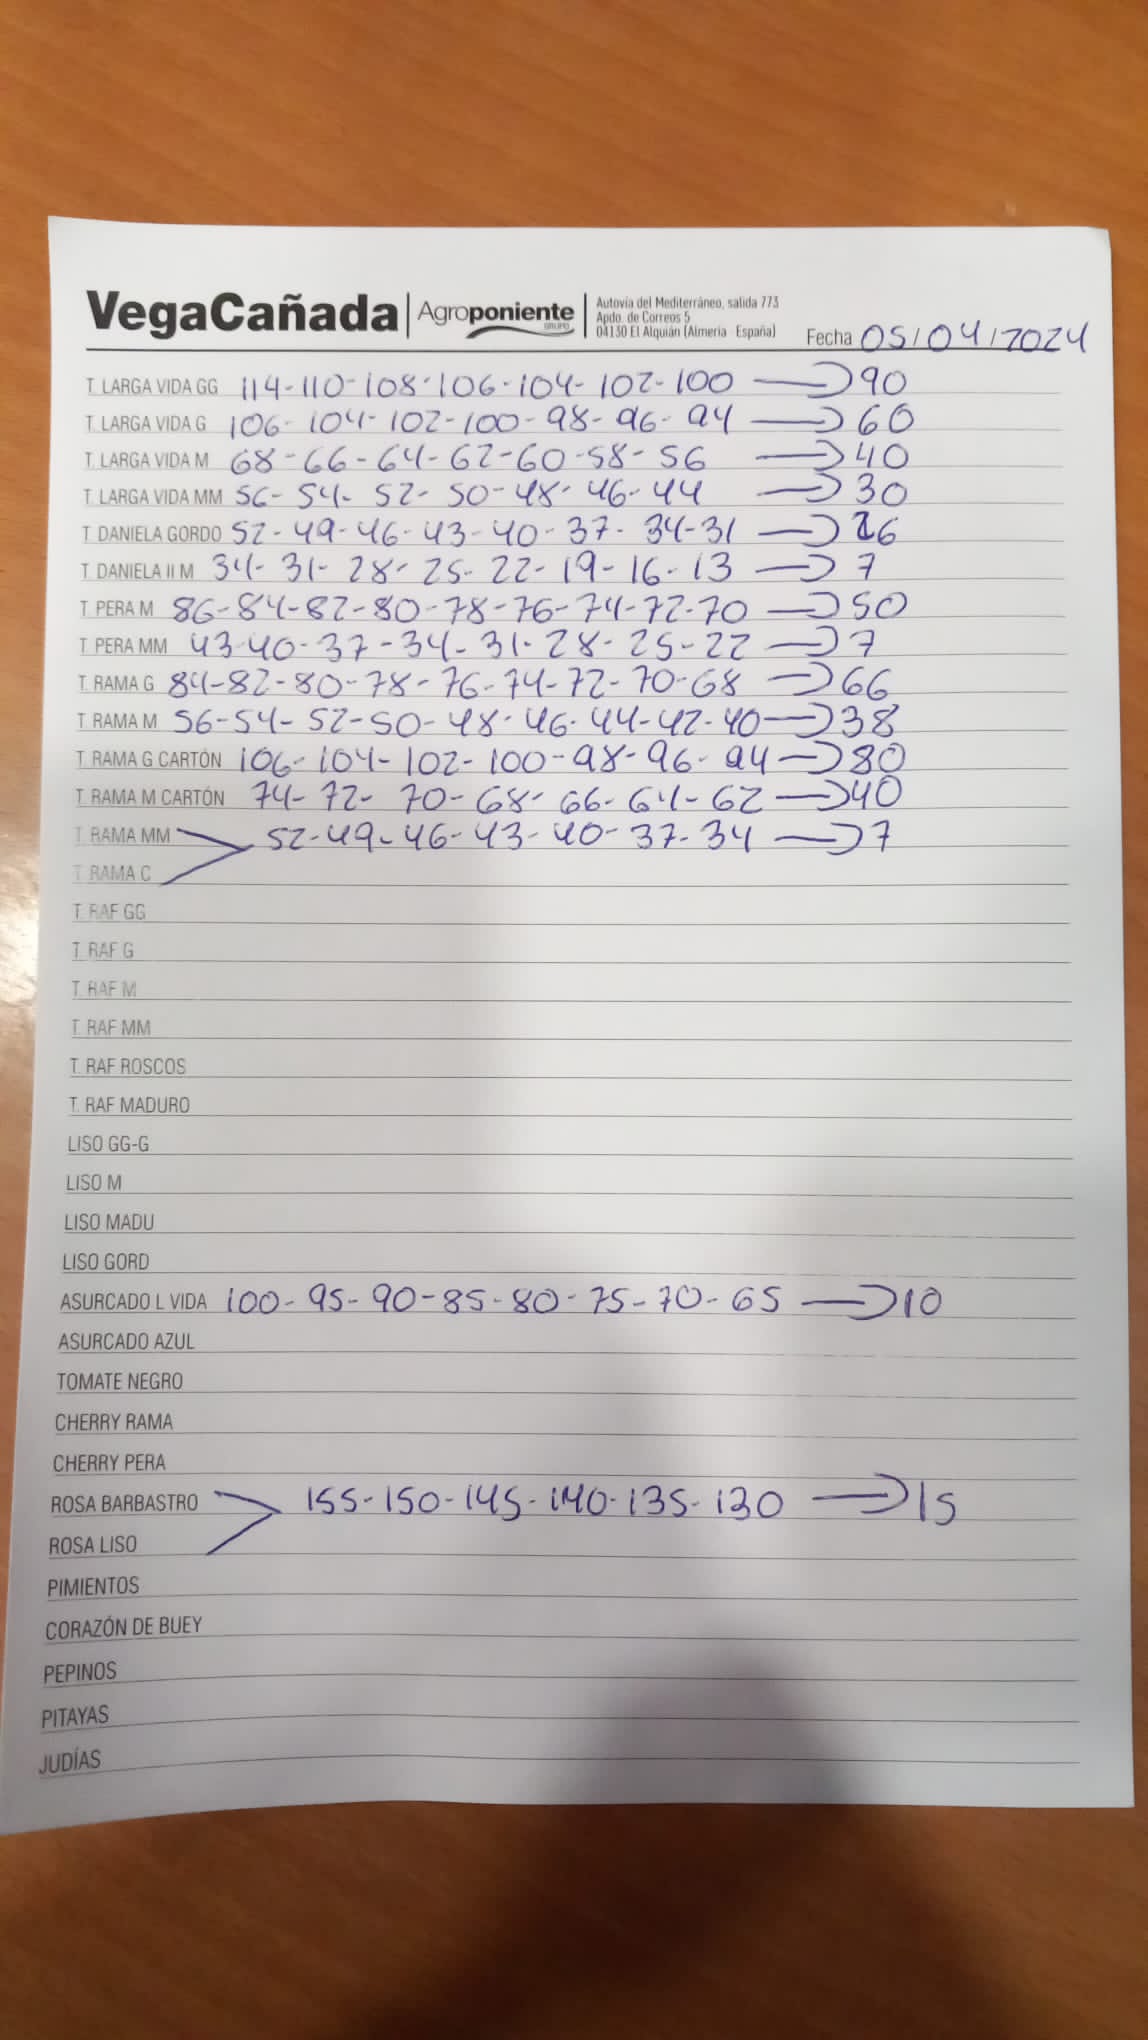 VegaCañada | Agroponiente GRUPO | Autovía del Mediterráneo, salida 773
Apdo. de Correos 5
04130 El Alquián (Almería - España)
Fecha 05/04/2024
T. LARGA VIDA GG 114-110-108-106-104-102-100 → 90
T. LARGA VIDA G 106-104-102-100-98-96-94 → 60
T. LARGA VIDA M 68-66-64-62-60-58-56 → 40
T. LARGA VIDA MM 56-54-52-50-48-46-44 → 30
T. DANIELA GORDO 52-49-46-43-40-37-34-31 → 26
T. DANIELA II M 34-31-28-25-22-19-16-13 → 7
T. PERA M 86-84-82-80-78-76-74-72-70 → 50
T. PERA MM 43-40-37-34-31-28-25-22 → 7
T. RAMA G 84-82-80-78-76-74-72-70-68 → 66
T. RAMA M 56-54-52-50-48-46-44-42-40 → 38
T. RAMA G CARTÓN 106-104-102-100-98-96-94 → 80
T. RAMA M CARTÓN 74-72-70-68-66-64-62 → 40
T. RAMA MM 52-49-46-43-40-37-34 → 7
T. RAMA C
T. RAF GG
T. RAF G
T. RAF M
T. RAF MM
T. RAF ROSCOS
T. RAF MADURO
LISO GG-G
LISO M
LISO MADU
LISO GORD
ASURCADO L VIDA 100-95-90-85-80-75-70-65 → 10
ASURCADO AZUL
TOMATE NEGRO
CHERRY RAMA
CHERRY PERA
ROSA BARBASTRO 155-150-145-140-135-130 → 15
ROSA LISO
PIMIENTOS
CORAZÓN DE BUEY
PEPINOS
PITAYAS
JUDÍAS